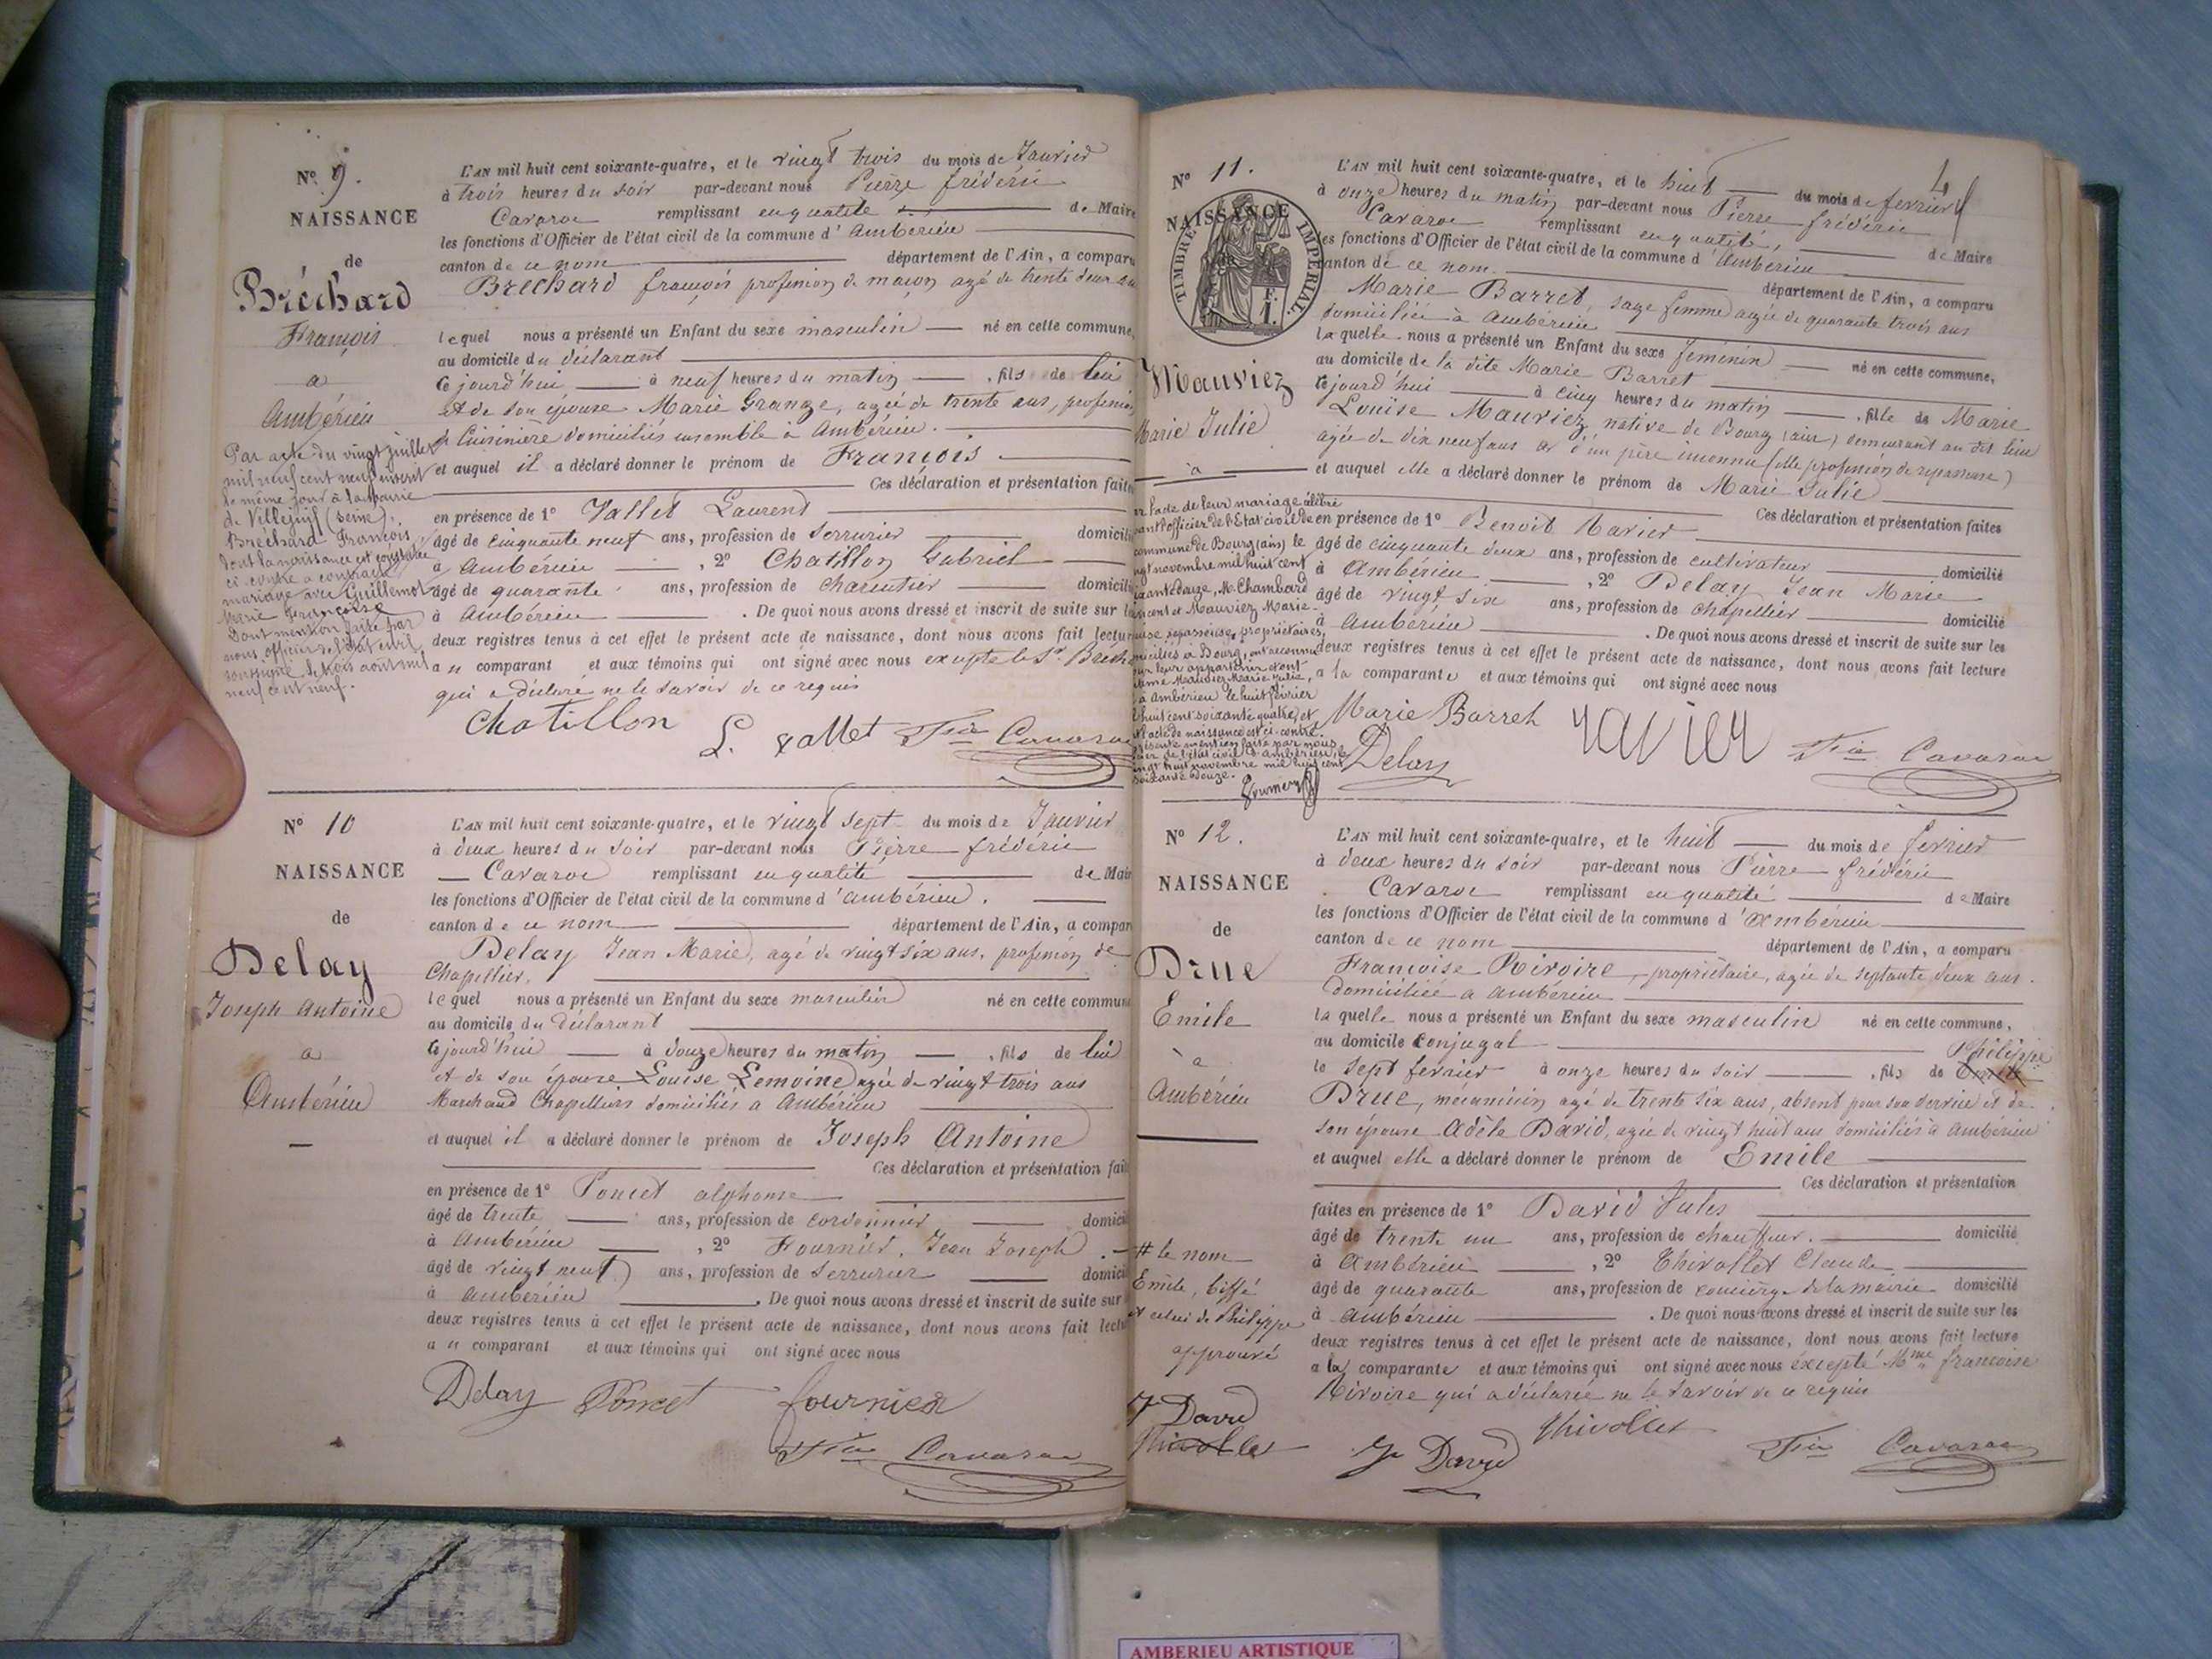 Nº 9.
NAISSANCE
de
Bréchard
François
a
Ambérieu
Par acte du vingt juillet
mil neuf cent neuf inscrit
le même jour à la mairie
de Villejuif (Seine),
Bréchard François
dont la naissance est constatée
ci-contre a contracté
mariage avec Guillemot
Marie Françoise
Dont mention faite par
nous officier de l'Etat civil
soussigné le trois août mil
neuf cent neuf.
L'AN mil huit cent soixante-quatre, et le vingt trois du mois de Janvier
à trois heures du soir par-devant nous Pierre frédéric
Cavaroc remplissant en qualité de Maire
les fonctions d'Officier de l'état civil de la commune d'Ambérieu
canton de ce nom département de l'Ain, a comparu
Bréchard françois profession de maçon agé de trente deux ans
lequel nous a présenté un Enfant du sexe masculin né en cette commune,
au domicile du déclarant
ce jourd'hui à neuf heures du matin , fils de lui
et de son épouse Marie Grange, agée de trente ans, profession
de Cuisinière domiciliés ensemble à Ambérieu.
et auquel il a déclaré donner le prénom de François
Ces déclaration et présentation faites
en présence de 1º Vallet Laurent
âgé de cinquante neuf ans, profession de serrurier domicilié
à Ambérieu , 2º Chatillon Gabriel
âgé de quarante ans, profession de charentier domicilié
à Ambérieu . De quoi nous avons dressé et inscrit de suite sur les
deux registres tenus à cet effet le présent acte de naissance, dont nous avons fait lecture
au comparant et aux témoins qui ont signé avec nous excepté le Sr. Bréchard
qui a déclaré ne le savoir de ce requis
Chatillon L. vallet Fic Cavaroc
Nº 10
NAISSANCE
de
Delay
Joseph Antoine
a
Ambérieu
L'AN mil huit cent soixante-quatre, et le vingt sept du mois de Janvier
à deux heures du soir par-devant nous Pierre frédéric
Cavaroc remplissant en qualité de Maire
les fonctions d'Officier de l'état civil de la commune d'Ambérieu.
canton de ce nom département de l'Ain, a comparu
Delay Jean Marie, agé de vingt six ans, profession de
Chapellier,
lequel nous a présenté un Enfant du sexe masculin né en cette commune
au domicile du déclarant
ce jourd'hui à douze heures du matin , fils de lui
et de son épouse Louise Lemoine agée de vingt trois ans
Marchand Chapelliers domiciliés a Ambérieu
et auquel il a déclaré donner le prénom de Joseph Antoine
Ces déclaration et présentation faites
en présence de 1º Poncet alphonse
âgé de trente ans, profession de cordonnier domicilié
à Ambérieu , 2º Fournier, Jean Joseph.
âgé de vingt neuf ans, profession de serrurier domicilié
à Ambérieu . De quoi nous avons dressé et inscrit de suite sur
deux registres tenus à cet effet le présent acte de naissance, dont nous avons fait lecture
au comparant et aux témoins qui ont signé avec nous
Delay Poncet fournier
Fic Cavaroc
4
Nº 11.
NAISSANCE
TIMBRE IMPERIAL
F.
1.
Mauviez
Marie Julie
à
l'acte de leur mariage célébré
l'officier de l'Etat civil de
commune de Bourg (ain) le
novembre mil huit cent
soixante douze, M. Chambard
et Mauviez Marie
repasseuse, propriétaires,
domiciliés à Bourg, ont reconnu
leur appartenir
Mauviez Marie Julie,
à Ambérieu le huit février
huit cent soixante quatre, et
l'acte de naissance est ci-contre.
mention faite par nous,
de l'état civil d'Ambérieu, le
vingt huit novembre mil huit cent
soixante douze.
L'AN mil huit cent soixante-quatre, et le huit du mois de fevrier
à onze heures du matin par-devant nous Pierre frédéric
Cavaroc remplissant en qualité, de Maire
les fonctions d'Officier de l'état civil de la commune d'Ambérieu
canton de ce nom département de l'Ain, a comparu
Marie Barret, sage femme agée de quarante trois ans
domiciliée à Ambérieu
laquelle nous a présenté un Enfant du sexe féminin né en cette commune,
au domicile de la dite Marie Barret
ce jourd'hui à cinq heures du matin , fille de Marie
Louise Mauviez native de Bourg (ain) demeurant au dit lieu
agée de dix neuf ans et d'un père inconnu (elle profession de repasseuse)
et auquel elle a déclaré donner le prénom de Marie Julie
Ces déclaration et présentation faites
en présence de 1º Benoit Ravier
âgé de cinquante deux ans, profession de cultivateur domicilié
à Ambérieu , 2º Delay Jean Marie
âgé de vingt six ans, profession de chapellier domicilié
à Ambérieu . De quoi nous avons dressé et inscrit de suite sur les
deux registres tenus à cet effet le présent acte de naissance, dont nous avons fait lecture
a la comparante et aux témoins qui ont signé avec nous
Marie Barret ravier
Delay Fic Cavaroc
Nº 12.
NAISSANCE
de
Drue
Emile
à
Ambérieu
# le nom
Emile, biffé
et celui de Philippe
approuvé
Je David
Thivollet
L'AN mil huit cent soixante-quatre, et le huit du mois de fevrier
à deux heures du soir par-devant nous Pierre frédéric
Cavaroc remplissant en qualité de Maire
les fonctions d'Officier de l'état civil de la commune d'Ambérieu
canton de ce nom département de l'Ain, a comparu
Francoise Rivoire, propriétaire, agée de septante deux ans.
domiciliée a Ambérieu
laquelle nous a présenté un Enfant du sexe masculin né en cette commune,
au domicile conjugal Philippe
le sept fevrier à onze heures du soir , fils de Emile
Drue, mécanicien agé de trente six ans, absent pour son service et de
son épouse Adèle David, agée de vingt huit ans domiciliés a Ambérieu
et auquel elle a déclaré donner le prénom de Emile
Ces déclaration et présentation
faites en présence de 1º David Jules
âgé de trente un ans, profession de chauffeur. domicilié
à Ambérieu , 2º Thivollet Claude
âgé de quarante ans, profession de concierge de la mairie domicilié
à Ambérieu . De quoi nous avons dressé et inscrit de suite sur les
deux registres tenus à cet effet le présent acte de naissance, dont nous avons fait lecture
a la comparante et aux témoins qui ont signé avec nous excepté Mme francoise
Rivoire qui a déclarée ne le savoir de ce requis
Je David Thivollet Fic Cavaroc
AMBERIEU ARTISTIQUE